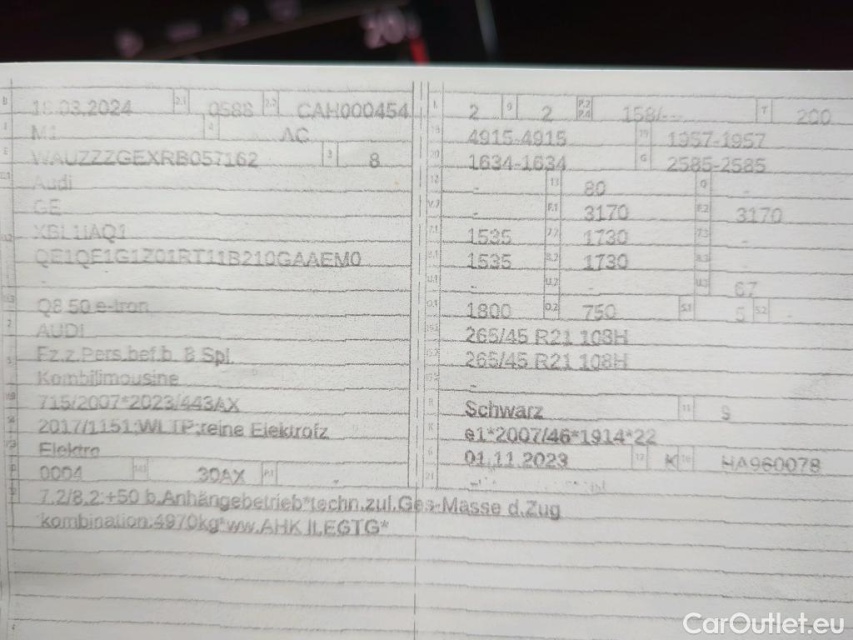 B 18.03.2024 2.1 0588 2.2 CAH000454
J M1 4 AC
E WAUZZZGEXRB057162 3 8
Audi
GE
QE1QE1G1Z01RT11B210GAAEM0
-
Q8 50 e-tron
AUDI
Fz.z.Pers.bef.b. 8 Spl.
Kombilimousine
715/2007*2023/443AX
2017/1151;WLTP;reine Elektrofz
Elektro
0004 30AX -
L 2 9 2 P.2 P.4 158/-- T 200
18 4915-4915 19 1957-1957
20 1634-1634 G 2585-2585
12 - 13 80 Q -
V.7 - F.1 3170 F.2 3170
7.1 1535 7.2 1730 7.3 -
8.1 1535 8.2 1730 8.3 -
U.1 - U.2 - U.3 67
O.1 1800 O.2 750 S.1 5 S.2 -
15.1 265/45 R21 108H
15.2 265/45 R21 108H
15.3 -
R Schwarz 11 9
K e1*2007/46*1914*22
6 01.11.2023 17 K 16 HA960078
21 -
7.2/8.2:+50 b.Anhängebetrieb*techn.zul.Ges-Masse d.Zug
kombination:4970kg*ww.AHK lt.EGTG*
CarOutlet.eu